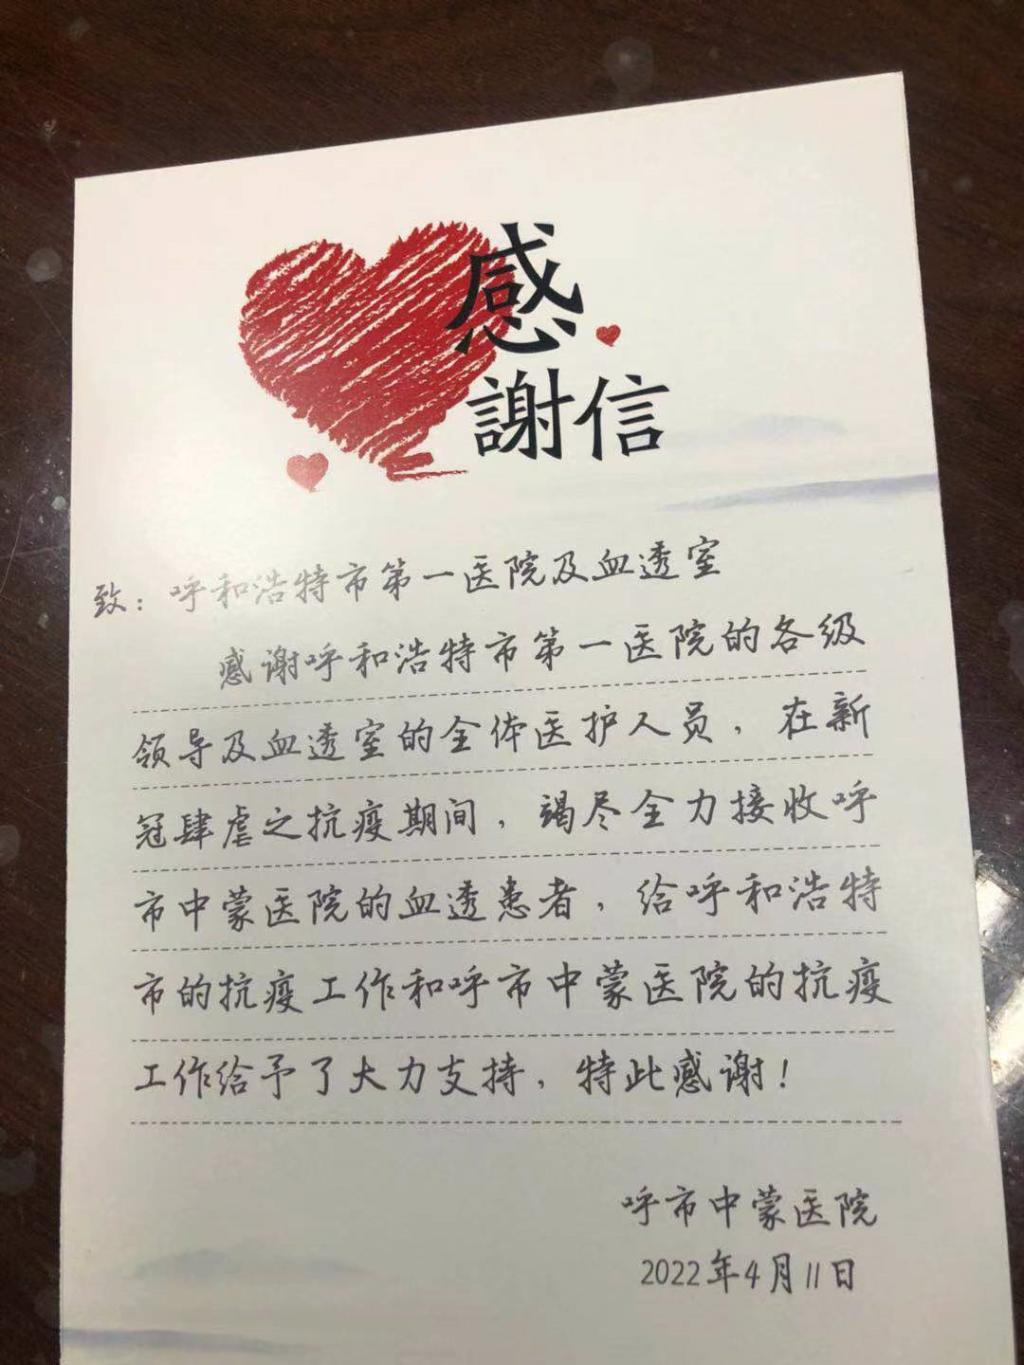 感
謝信
致：呼和浩特市第一医院及血透室
感谢呼和浩特市第一医院的各级
领导及血透室的全体医护人员，在新
冠肆虐之抗疫期间，竭尽全力接收呼
市中蒙医院的血透患者，给呼和浩特
市的抗疫工作和呼市中蒙医院的抗疫
工作给予了大力支持，特此感谢！
呼市中蒙医院
2022年4月11日